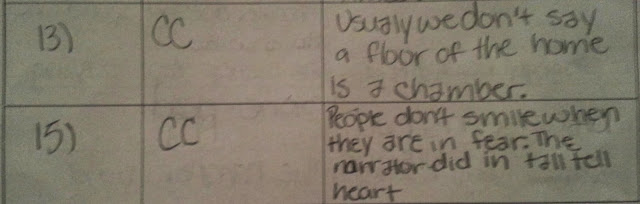 13)
CC
Usualy we don't say
a floor of the home
is a chamber.
15)
CC
People don't smile when
they are in fear. The
narrator did in tall tell
heart